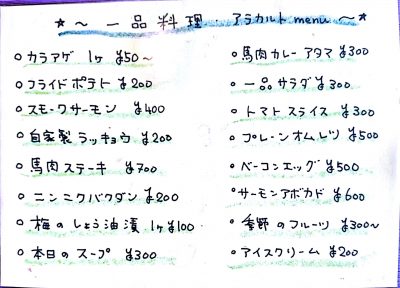 ★～ 一品料理・アラカルト menu ～★
○カラアゲ 1ヶ ¥50～
○フライドポテト ¥200
○スモークサーモン ¥400
○自家製ラッキョウ ¥200
○馬肉ステーキ ¥700
○ニンニクバクダン ¥200
○梅のしょう油漬 1ヶ¥100
○本日のスープ ¥300
○馬肉カレーアタマ ¥300
○一品サラダ ¥300
○トマトスライス ¥300
○プレーンオムレツ ¥500
○ベーコンエッグ ¥500
○サーモンアボカド ¥600
○季野のフルーツ ¥300～
○アイスクリーム ¥200